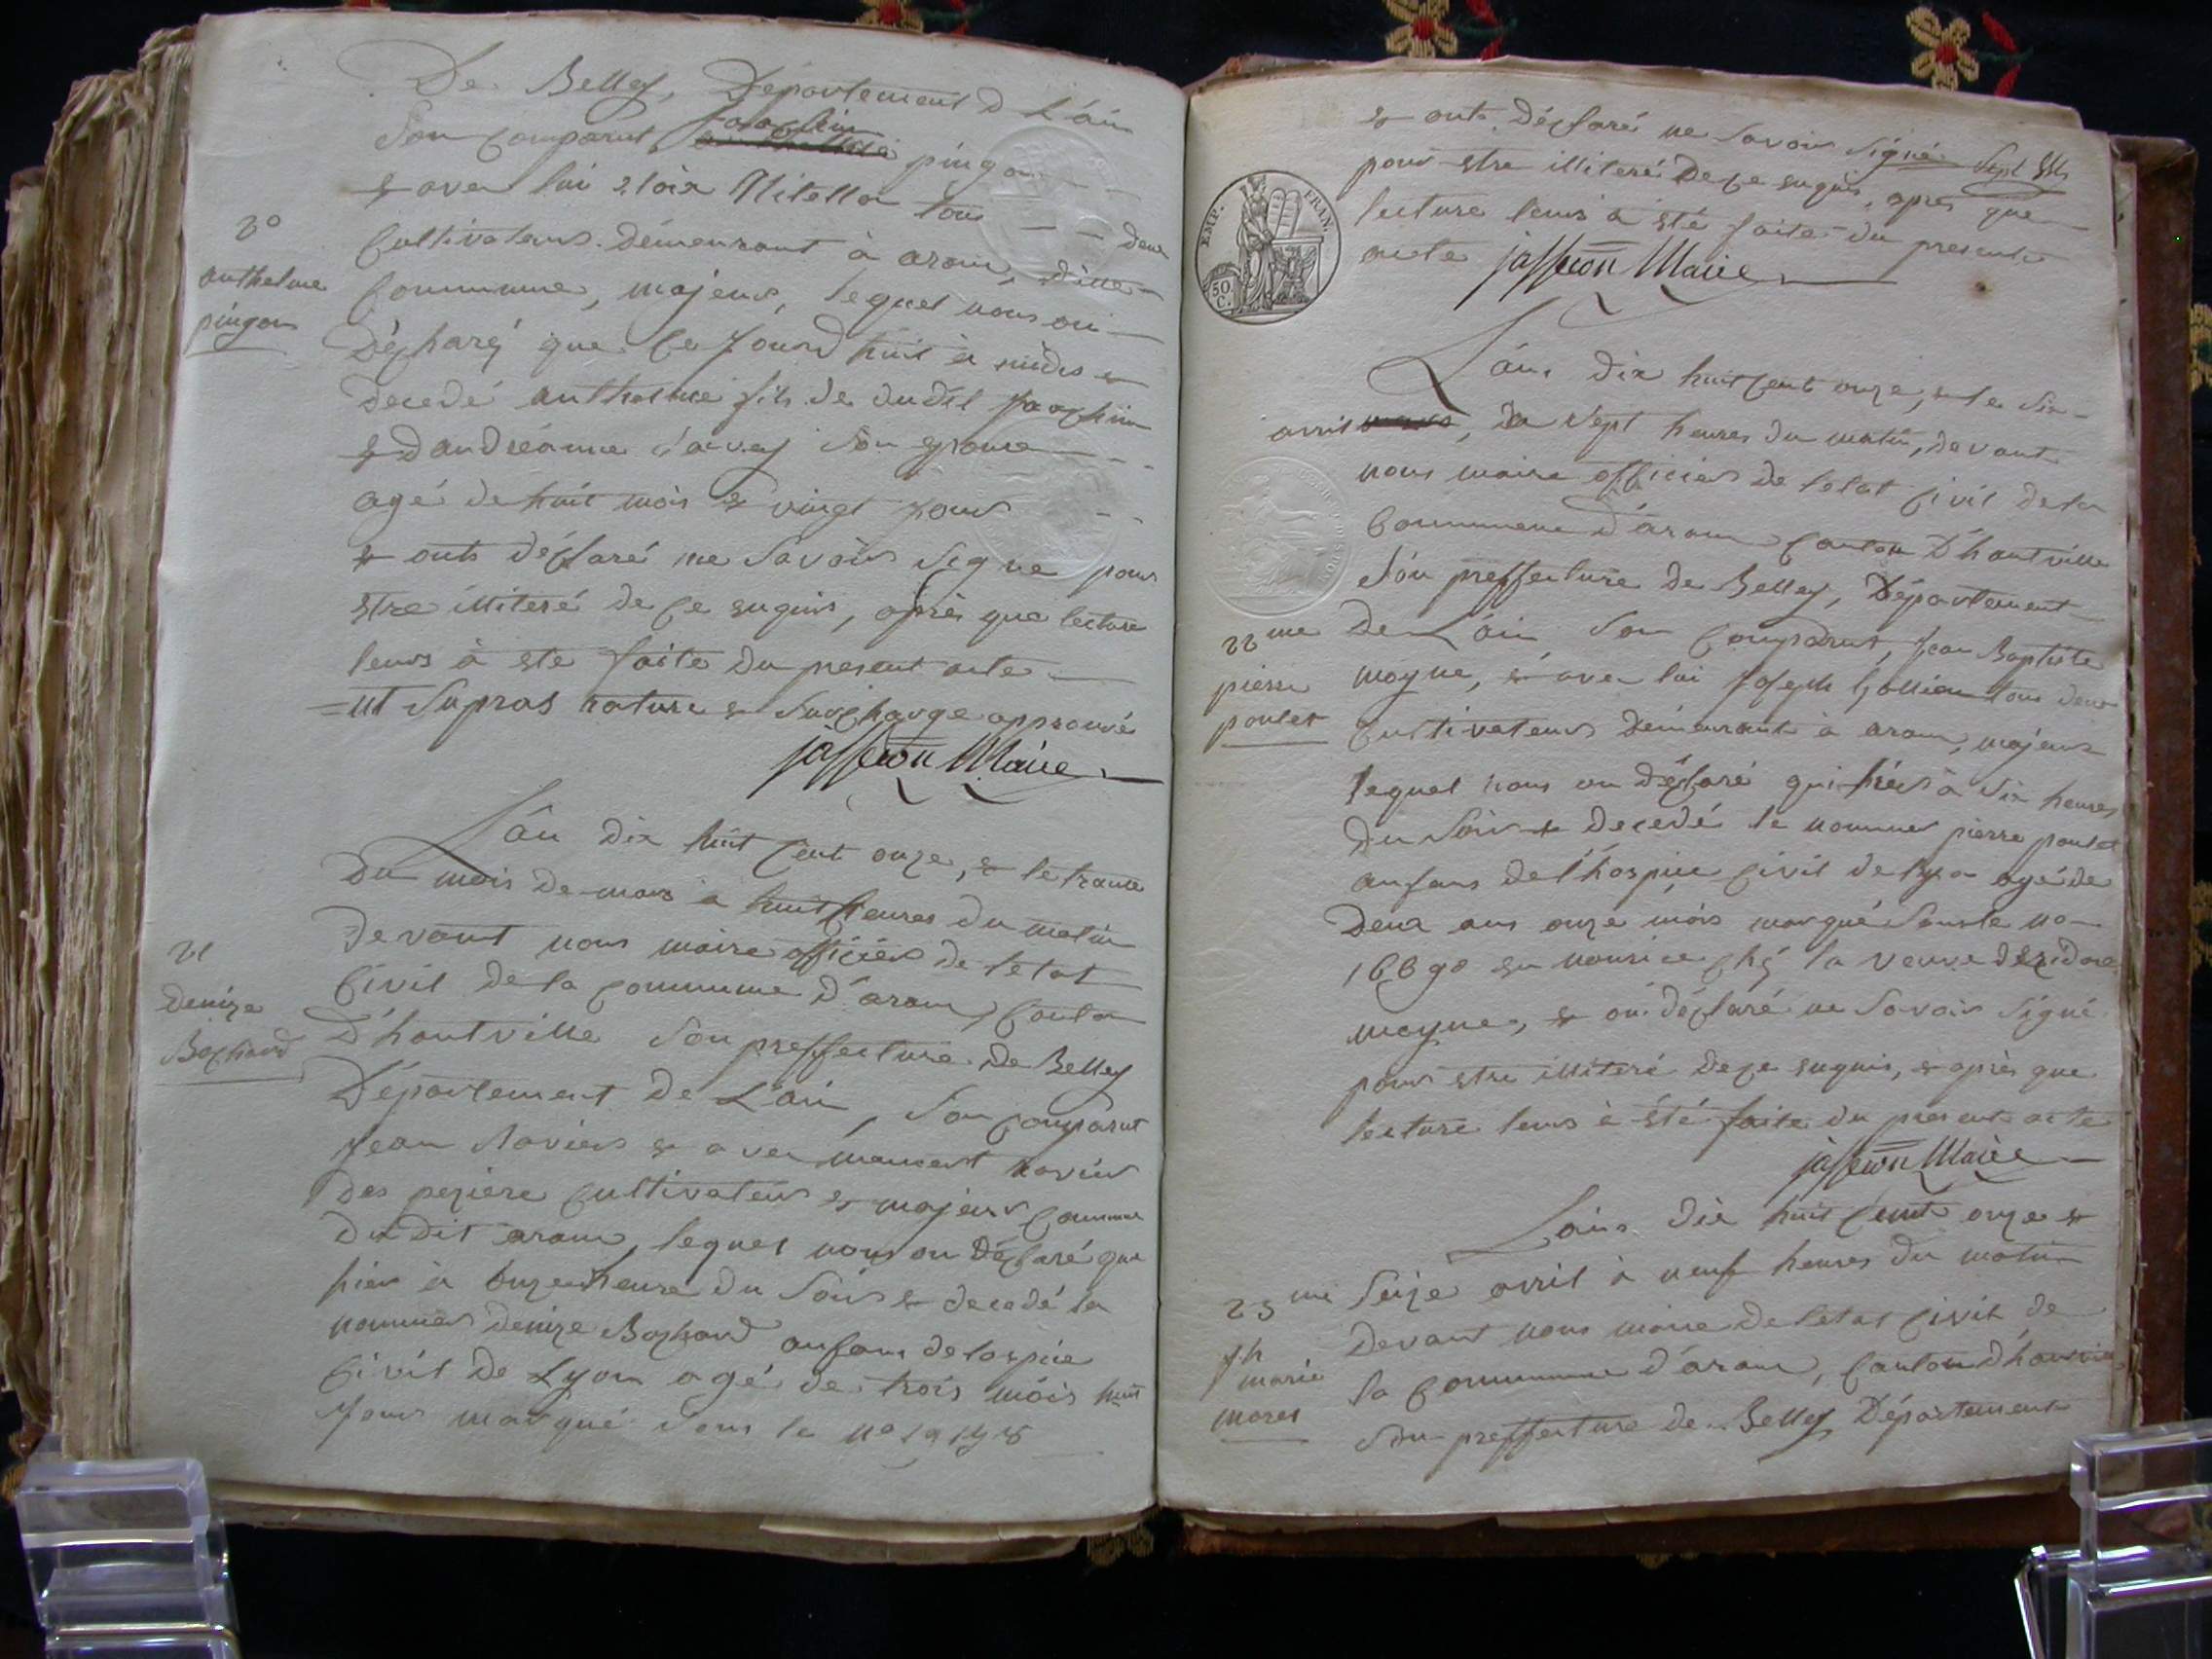 De Belley, Département d L'ain
Son Comparut joachim pingon
& avec lui Nitollon tous deux
Cultivateurs Démeurant à aran, ditte
20
anthelme
pingon
Commune, majeurs, lequel nous on
Déclaré que ce jourd huit à midis &
decedé anthelme fils de dudit joachim
& D andréanne son epouse
agé de huit mois & vingt jours
& onts déclaré ne savoir signe pour
etre illiteré de ce enquis, après que lecture
leurs à ete faite du present acte
ut Supras rature & Surcharge approuvé
jasseron Maire
L'an dix huit Cent onze, & le trante
Du mois de mars à huit heures du matin
devant nous maire officier de l'etat
21
denize
Bochard
Civil de la Commune d'aran, Canton
D'hautville Sou preffecture de Belley
Département de L'ain, Son Comparut
jean Savier & avec Savier
Des peziere Cultivateur & majeur Commune
Du Dit aran, lequel nous on Déclaré que
hier à onze heure du Soir & decedé la
nommés denize Bochard anfans de lospice
Civil de Lyon agé de trois mois huit
jours marqué sous le no
& onts Déclaré ne savoir signé
pour etre illiteré de ce enquis, apres que
lecture leurs à été faite du presents
acte jasseron Maire
EMP. FRAN.
50 C.
L'an dix huit Cent onze, & le six
avril mars, à sept heures du matin, devant
nous maire officier de l'etat Civil de la
Commune d'aran Canton D'hautville
Sou preffecture de Belley, Département
22 me
pierre
poulet
De L'ain Son Comparut, jean Baptiste
moyne, & avec lui joseph Gollion tous deux
Cultivateurs Demeurant à aran, majeurs
lequel nous on Déclaré qui hier à six heures
du Soir & decedé le nommés pierre poulet
anfans de l'hospice Civil de lyon agé de
Deux ans onze mois marqué sous le no
16690 en nourice ché la veuve
moyne, & on déclaré ne savoir signé
pour etre illiteré de ce enquis, & après que
lecture leurs à été faite du present acte
jasseron Maire
L'an dix huit Cent onze &
Seize avril à neuf heures du matin
23 me
marie
morel
Devant nous maire de l'etat Civil de
la Commune d'aran, Canton d'hautville
Sou preffecture de Belley Département